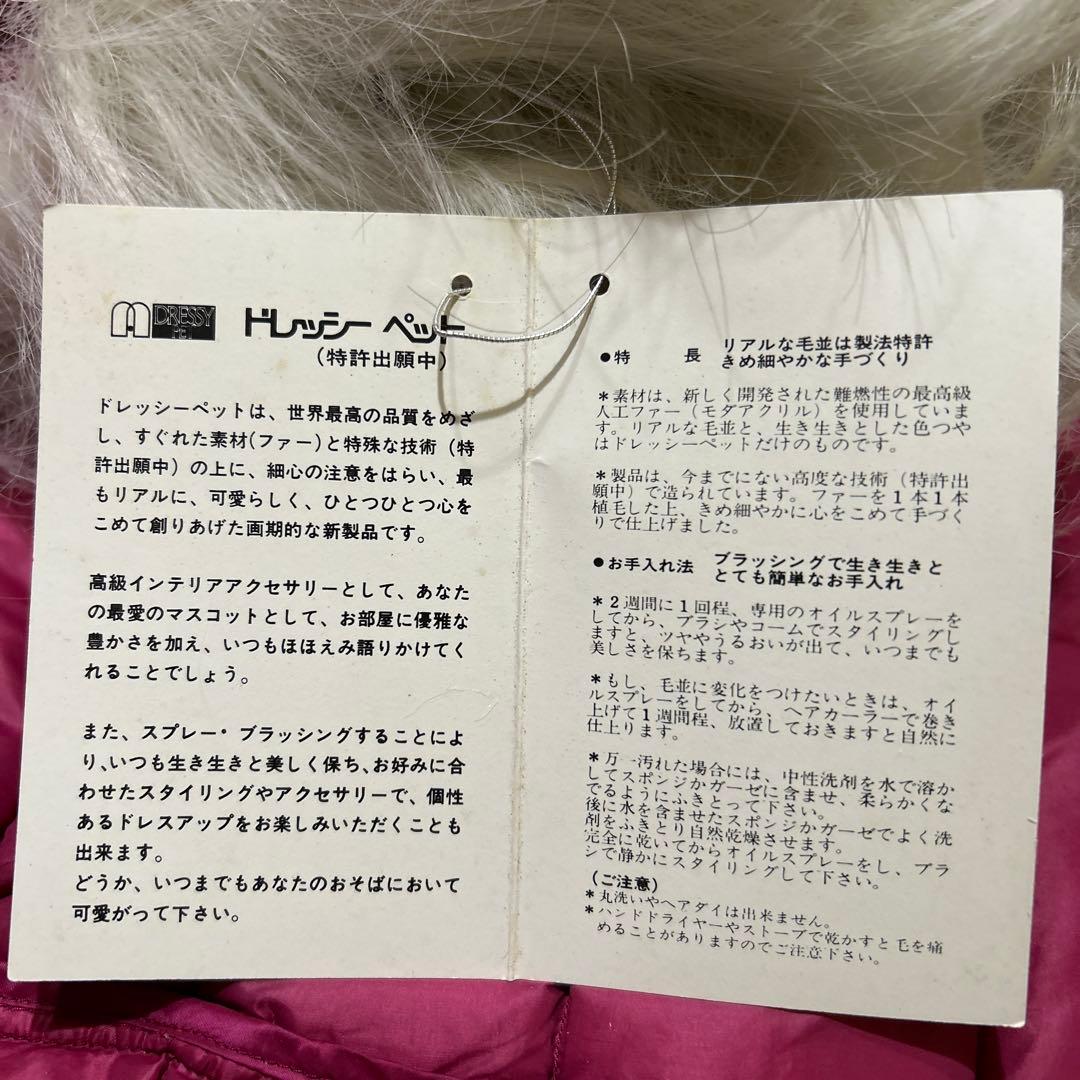 DRESSY
PET
ドレッシー ペット
(特許出願中)
ドレッシーペットは、世界最高の品質をめざ
し、すぐれた素材(ファー)と特殊な技術(特
許出願中)の上に、細心の注意をはらい、最
もリアルに、可愛らしく、ひとつひとつ心を
こめて創りあげた画期的な新製品です。
高級インテリアアクセサリーとして、あなた
の最愛のマスコットとして、お部屋に優雅な
豊かさを加え、いつもほほえみ語りかけてく
れることでしょう。
また、スプレー・ブラッシングすることによ
り、いつも生き生きと美しく保ち、お好みに合
わせたスタイリングやアクセサリーで、個性
あるドレスアップをお楽しみいただくことも
出来ます。
どうか、いつまでもあなたのおそばにおいて
可愛がって下さい。
●特 長 リアルな毛並は製法特許
きめ細やかな手づくり
*素材は、新しく開発された難燃性の最高級
人工ファー(モダアクリル)を使用していま
す。リアルな毛並と、生き生きとした色つや
はドレッシーペットだけのものです。
*製品は、今までにない高度な技術(特許出
願中)で造られています。ファーを1本1本
植毛した上、きめ細やかに心をこめて手づく
りで仕上げました。
●お手入れ法 ブラッシングで生き生きと
とても簡単なお手入れ
*2週間に1回程、専用のオイルスプレーを
してから、ブラシやコームでスタイリングし
ますと、ツヤやうるおいが出て、いつまでも
美しさを保ちます。
*もし、毛並に変化をつけたいときは、オイ
ルスプレーをしてから、ヘアカーラーで巻き
上げて1週間程、放置しておきますと自然に
仕上ります。
*万一汚れた場合には、中性洗剤を水で溶か
してスポンジかガーゼに含ませ、柔らかくな
でるようにふきとって下さい。
後に水を含ませたスポンジかガーゼでよく洗
剤をふきとり自然乾燥させます。
完全に乾いてからオイルスプレーをし、ブラ
シで静かにスタイリングして下さい。
(ご注意)
*丸洗いやヘアダイは出来ません。
*ハンドドライヤーやストーブで乾かすと毛を痛
めることがありますのでご注意下さい。